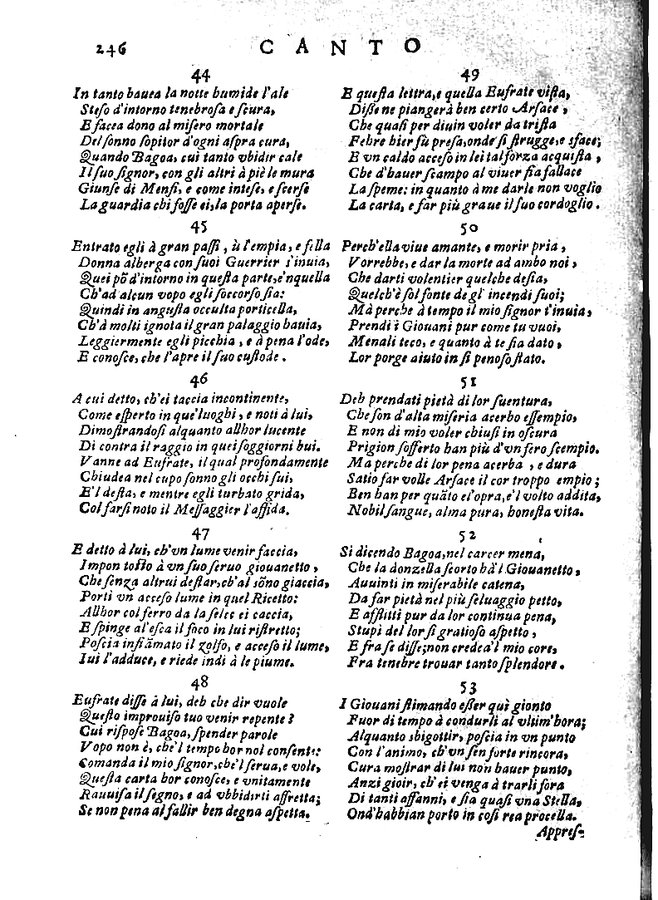 246 CANTO
44
In tanto hauea la notte humide l'ale
Steso d'intorno tenebrosa e scura,
E facea dono al misero mortale
Del sonno sopitor d'ogni aspra cura,
Quando Bagoa, cui tanto vbidir cale
Il suo signor, con gli altri à piè le mura
Giunse di Menfi, e come intese, e scerse
La guardia chi fosse ei, la porta aperse.
45
Entrato egli à gran passi, ù l'empia, e fella
Donna alberga con suoi Guerrier s'inuia,
Quei põ d'intorno in questa parte, e'nquella
Ch'ad alcun vopo egli soccorso sia:
Quindi in angusta occulta porticella,
Ch'à molti ignota il gran palaggio hauia,
Leggiermente egli picchia, e à pena l'ode,
E conosce, che l'apre il suo custode.
46
A cui detto, ch'ei taccia incontinente,
Come esperto in que'luoghi, e noti à lui,
Dimostrandosi alquanto allhor lucente
Di contra il raggio in quei soggiorni bui.
Vanne ad Eufrate, il qual profondamente
Chiudea nel cupo sonno gli occhi sui,
E'l desta, e mentre egli turbato grida,
Col farsi noto il Messaggier l'affida.
47
E detto à lui, ch'vn lume venir faccia,
Impon tosto à vn suo seruo giouanetto,
Che senza altrui destar, ch'al sõno giaccia,
Porti vn acceso lume in quel Ricetto:
Allhor col ferro da la selce ei caccia,
E spinge al'esca il foco in lui ristretto;
Poscia infiãmato il zolfo, e acceso il lume,
Iui l'adduce, e riede indi à le piume.
48
Eufrate disse à lui, deh che dir vuole
Questo improuiso tuo venir repente?
Cui rispose Bagoa, spender parole
Vopo non è, che'l tempo hor nol consente:
Comanda il mio signor, che'l serua, e vole,
Questa carta hor conosce, e vnitamente
Rauuisa il segno, e ad vbbidirti affretta;
Se non pena al fallir ben degna aspetta.
49
E questa lettra, e quella Eufrate vista,
Disse ne piangerà ben certo Arsace,
Che quasi per diuin voler da trista
Febre hier fù presa, onde si strugge, e sface;
E vn caldo acceso in lei tal forza acquista,
Che d'hauer scampo al viuer sia fallace
La speme: in quanto à me darle non voglio
La carta, e far più graue il suo cordoglio.
50
Perch'ella viue amante, e morir pria,
Vorrebbe, e dar la morte ad ambo noi,
Che darti volentier quel che desia,
Quelch'è sol fonte de gl'incendi suoi;
Mà perche à tempo il mio signor t'inuia,
Prendi i Giouani pur come tu vuoi,
Menali teco, e quanto à te sia dato,
Lor porge aiuto in sì penoso stato.
51
Deh prendati pietà di lor suentura,
Che son d'alta miseria acerbo essempio,
E non di mio voler chiusi in oscura
Prigion sofferto han più d'vn fero scempio.
Ma perche di lor pena acerba, e dura
Satio far volle Arsace il cor troppo empio;
Ben han per quãto ei l'opra, e'l volto addita,
Nobil sangue, alma pura, honesta vita.
52
Sì dicendo Bagoa, nel carcer mena,
Che la donzella scorto hà'l Giouanetto,
Auuinti in miserabile catena,
Da far pietà nel più seluaggio petto,
E afflitti pur da lor continua pena,
Stupì del lor sì gratioso aspetto,
E fra se disse; non credea'l mio core,
Fra tenebre trouar tanto splendore.
53
I Giouani stimando esser quì gionto
Fuor di tempo à condurli al vltim'hora;
Alquanto sbigottir, poscia in vn punto
Con l'animo, ch'vn sen forte rincora,
Cura mostrar di lui non hauer punto,
Anzi gioir, ch'ei venga à trarli fora
Di tanti affanni, e sia quasi vna Stella,
Ond'habbian porto in così rea procella.
Appres-